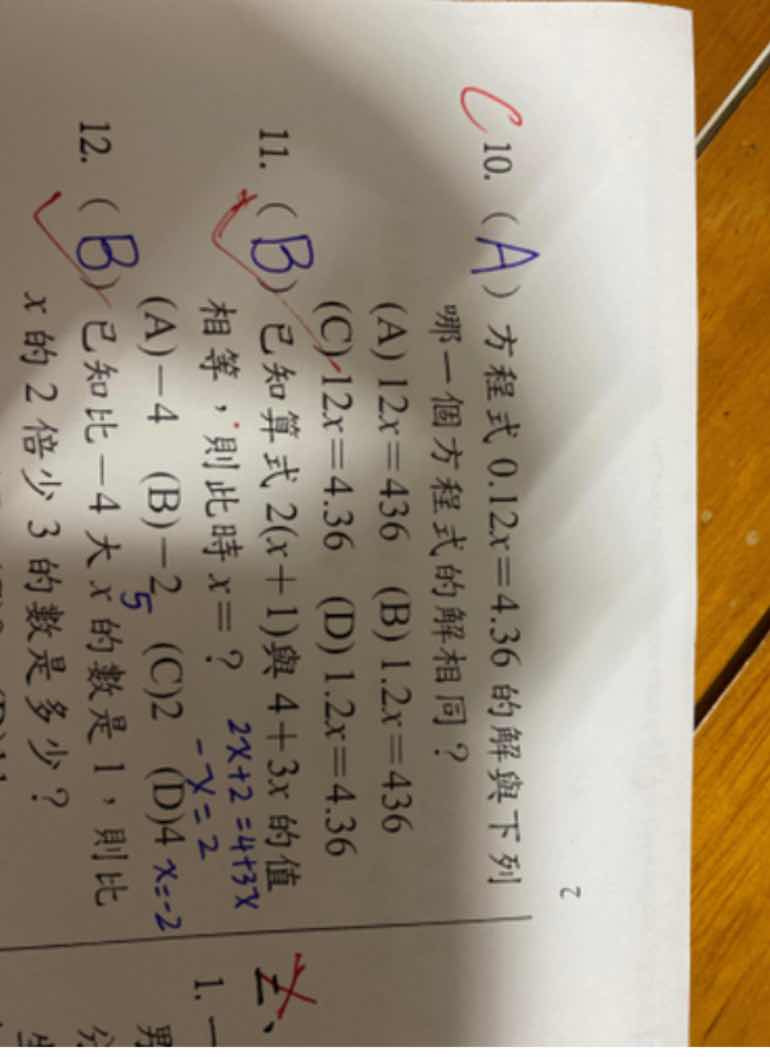 2
C
10. ( A ) 方程式 0.12x=4.36 的解與下列
哪一個方程式的解相同？
(A) 12x=436 (B) 1.2x=436
(C) 12x=4.36 (D) 1.2x=4.36
11. ( B ) 已知算式 2(x+1)與 4+3x 的值
相等，則此時 x=？
2x+2=4+3x
-x=2
x=-2
(A)-4 (B)-2 (C)2 (D)4
5
12. ( B ) 已知比-4 大 x 的數是 1，則比
x 的 2 倍少 3 的數是多少？
二、
1. 一
男
分